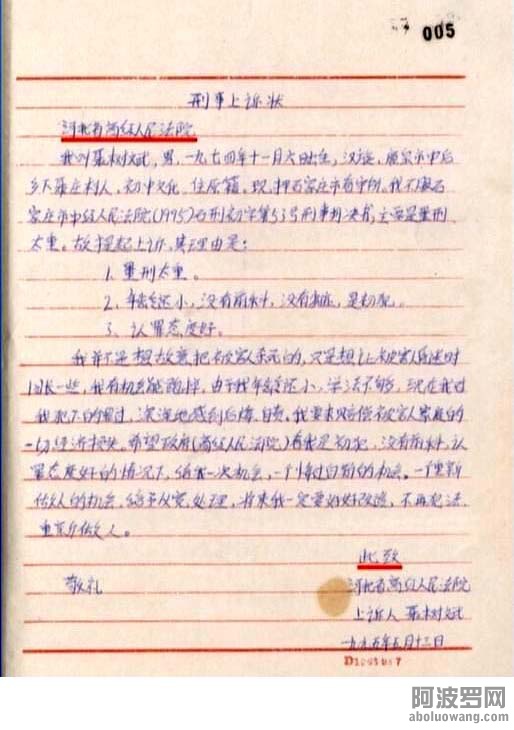 005
刑事上诉状
河北省高级人民法院
我叫聂树斌,男,一九七四年十一月六日出生,汉族,鹿泉市申后
乡下聂庄村人,初中文化,住原籍,现押石家庄市看守所,我不服石
家庄市中级人民法院(1995)石刑初字第53号刑事判决书,主要是量刑
太重。故提起上诉,其理由是:
1. 量刑太重。
2. 年龄还小,没有前科,没有劣迹,是初犯。
3. 认罪态度好。
我并不是想故意把被害人杀死的,只是想让被害人昏迷时
间长一些,我有机会能跑掉,由于我年龄还小,学法不够,现在我对
我犯下的罪过,深深地感到后悔、自责。我要求赔偿被害人家庭的
一切经济损失。希望政府(高级人民法院)看我是初犯,没有前科,认
罪态度好的情况下,给我一次机会,一个悔过自新的机会。一个重新
做人的机会,给予从宽处理,将来我一定要好好改造,不再犯法,
重新做人。
此致
敬礼
河北省高级人民法院
上诉人 聂树斌
一九九五年五月十三日
阿波罗网
aboluowang.com